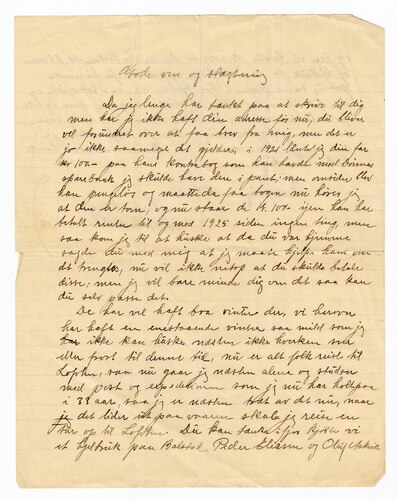 Gode ven og slægtning
Da jeg lenge har tænkt paa at skrive til dig
men har jeg ikke haft din adresse før nu, du bliver
vel forundret over at faa brev fra mig, men det er
jo ikke saameget det gjelder, i 1921 laante jeg din far
kr 100.- paa hans kontrabog som han havde med Dönnes
sparebank jeg skulde have den i pant; men omsider blev
han pengelös og maatte da faa bogen nu hörer jeg
at den er tom, og nu staar de kr. 100 igjen han har
betalt renter til og med 1925 siden ingen ting, men
saa kom jeg til at huske at da du var hjemme
sagde du med mig at jeg maatte hjelpe ham om
det trengtes, nu vil ikke netop at du skulde betale
disse; men jeg vil bare minde dig om det saa kan
du selv passe det.
De har vel haft bra vinter der, vi heroppe
har haft en enestaaende vinter saa mild som jeg
ikke kan huske næsten ikke hverken sne
eller frost til denne tid, nu er alt folk reist til
Lofoten, saa nu gaar jeg næsten alene og studser
med post og expeditionen som jeg nu har holt paa
i 33 aar, saa jeg er næsten træt av det nu, naar
det lider ut paa vaaren skal jeg reise en
tur op til Lofoten. Du kan tænke i fjor kjöbte vi
et hjelbruk paa Balstad, Peder Eliesen og Oluf